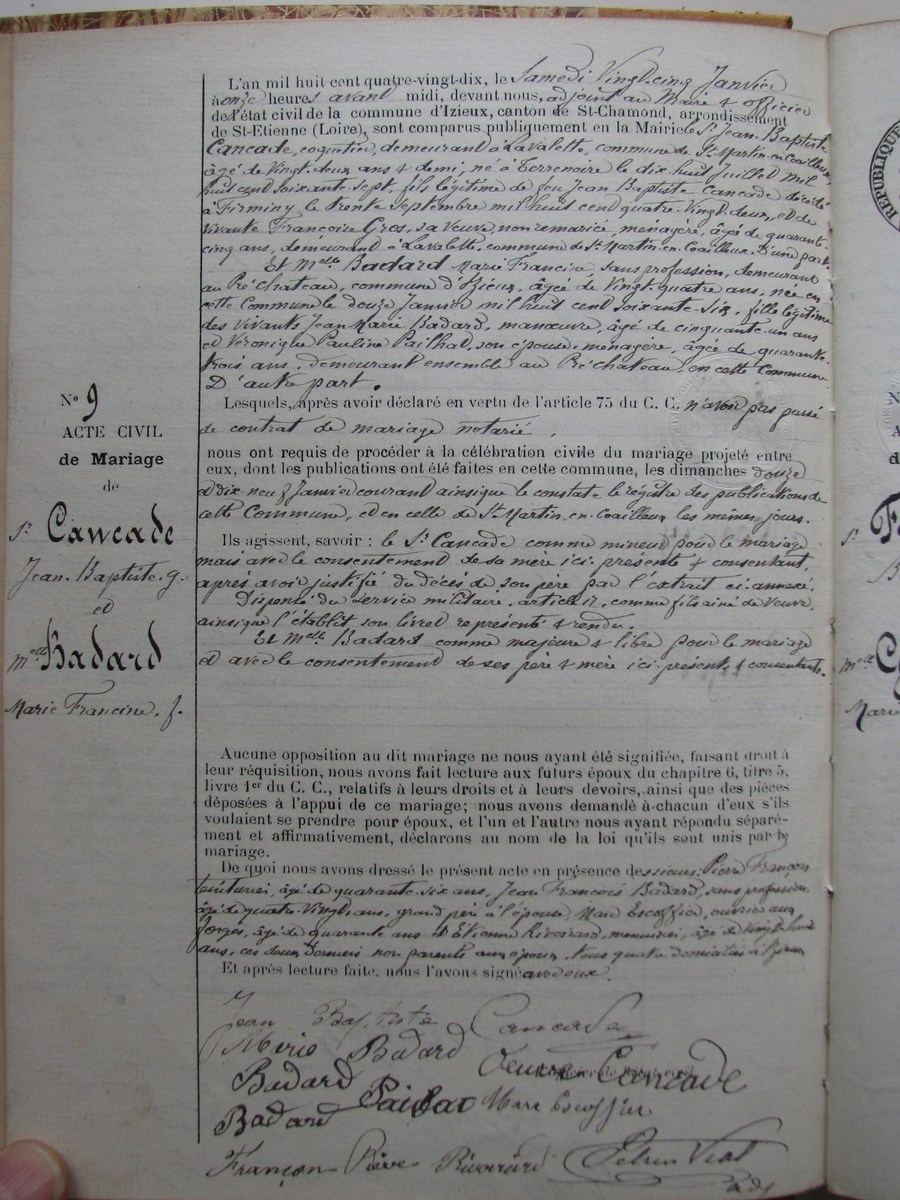 L'an mil huit cent quatre-vingt-dix, le Samedi Vingt-cinq Janvier
à onze heures avant midi, devant nous, adjoint au Maire & officier
de l'état civil de la commune d'Izieux, canton de St-Chamond, arrondissement
de St-Etienne (Loire), sont comparus publiquement en la Mairie le Sr Jean-Baptiste
Cancade, coquetier, demeurant à Lavalette, commune de St Martin-en-Coailleux,
âgé de Vingt-deux ans & demi, né à Terrenoire le dix huit Juillet mil
huit cent soixante-sept, fils légitime de feu Jean Baptiste Cancade décédé
à Firminy le trente Septembre mil huit cent quatre-vingt-deux, et de
vivante Françoise Gros, sa Veuve non remariée, ménagère, âgée de quarante-
cinq ans, demeurant à Lavalette, commune de St Martin-en-Coailleux. D'une part.
Et Melle Badard Marie Francine, sans profession, demeurant
au Pré-Château, commune d'Izieux, âgée de Vingt-quatre ans, née en
cette Commune le douze Janvier mil huit cent soixante-six, fille légitime
des vivants Jean Marie Badard, manœuvre, âgé de cinquante-un ans
et Véronique Pauline Pailhat, son épouse, ménagère, âgée de quarante-
trois ans, demeurant ensemble au Pré-château, en cette Commune
D'autre part.
Lesquels, après avoir déclaré en vertu de l'article 75 du C. C. n'avoir pas passé
de contrat de mariage notarié,
nous ont requis de procéder à la célébration civile du mariage projeté entre
eux, dont les publications ont été faites en cette commune, les dimanches douze
et dix-neuf Janvier courant ainsi que le constate le registre des publications de
cette Commune, et en celle de St Martin-en-Coailleux les mêmes jours.
Ils agissent, savoir : le Sr Cancade comme mineur pour le mariage
mais avec le consentement de sa mère ici présente & consentant,
après avoir justifié du décès de son père par l'extrait ci-annexé.
Dispensé du service militaire, article 17, comme fils aîné de veuve,
ainsi que l'établit son livret représenté & rendu.
Et Melle Badard comme majeure & libre pour le mariage
et avec le consentement de ses père & mère ici présents & consentants.
Nº 9
ACTE CIVIL
de Mariage
de
Sr Cancade
Jean-Baptiste. g.
et
Melle Badard
Marie Francine. f.
Aucune opposition au dit mariage ne nous ayant été signifiée, faisant droit à
leur réquisition, nous avons fait lecture aux futurs époux du chapitre 6, titre 5,
livre 1er du C. C., relatifs à leurs droits et à leurs devoirs, ainsi que des pièces
déposées à l'appui de ce mariage; nous avons demandé à chacun d'eux s'ils
voulaient se prendre pour époux, et l'un et l'autre nous ayant répondu séparé-
ment et affirmativement, déclarons au nom de la loi qu'ils sont unis par le
mariage.
De quoi nous avons dressé le présent acte en présence des sieurs: Pierre Françon
teinturier, âgé de quarante-six ans, Jean François Badard, sans profession,
âgé de quatre-Vingts ans, grand père à l'épouse, Marc Escoffier, ouvrier aux
forges, âgé de quarante ans et Etienne Rivoirard, menuisier, âgé de vingt-huit
ans, ces deux derniers non parents aux époux. Tous quatre domiciliés à Izieux
Et après lecture faite, nous l'avons signé avec eux.
Jean Baptiste Cancade
Marie Badard
Badard Veuve Cancade
Pailhat Marc Escoffier
Badard
Françon Pierre Rivoirard